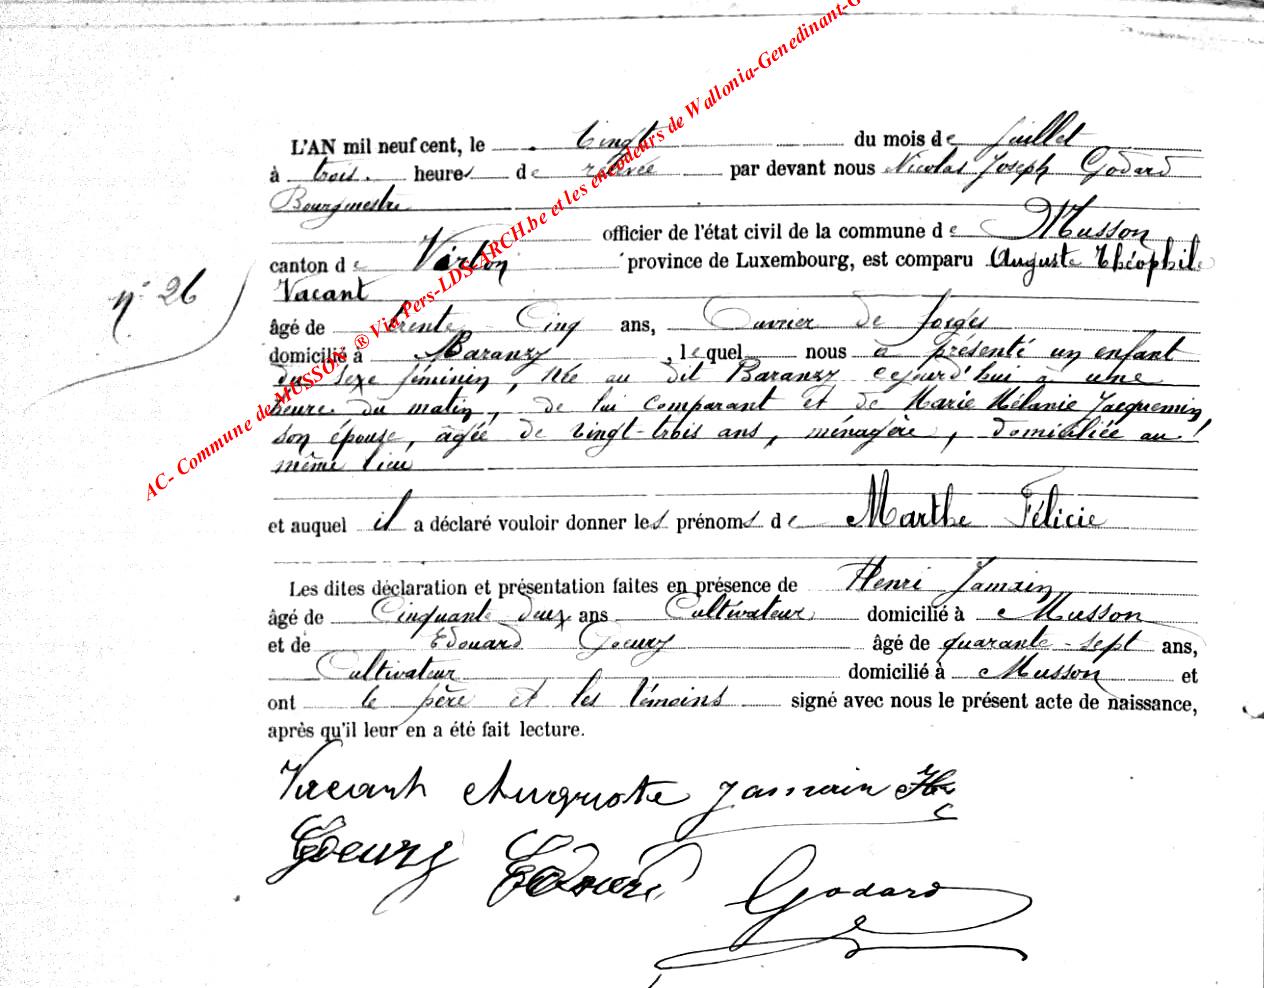 L'AN mil neuf cent, le vingt du mois de Juillet
à trois heures de relevée par devant nous Nicolas Joseph Godard
Bourgmestre
officier de l'état civil de la commune de Musson
canton de Virton province de Luxembourg, est comparu Auguste Théophile
Vacant
n° 26
âgé de trente cinq ans, Ouvrier de forges
domicilié à Baranzy, lequel nous a présenté un enfant
du sexe féminin, née au dit Baranzy cejourd'hui à une
heure du matin, de lui comparant et de Marie Mélanie Jacquemin,
son épouse, âgée de vingt-trois ans, ménagère, domiciliée au
même lieu
et auquel il a déclaré vouloir donner les prénoms de Marthe Félicie
Les dites déclaration et présentation faites en présence de Henri Jamain
âgé de Cinquante deux ans Cultivateur domicilié à Musson
et de Edouard Goeury âgé de quarante-sept ans,
Cultivateur domicilié à Musson et
ont le père et les témoins signé avec nous le présent acte de naissance,
après qu'il leur en a été fait lecture.
Vacant Auguste Jamain Hri
Goeury Edouard
Godard
AC- Commune de MUSSON ® Via Pers-LDS-ARCH.be et les encodeurs de Wallonia-Genedinant-G